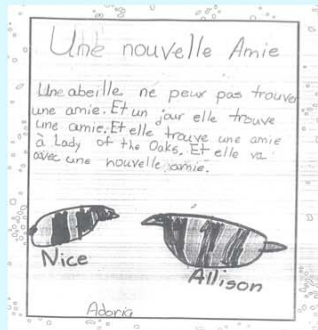 Une nouvelle Amie
Une abeille ne peux pas trouver
une amie. Et un jour elle trouve
une amie. Et elle trouve une amie
à Lady of the Oaks. Et elle va
avec une nouvelle amie.
Nice
Allison
Adoria